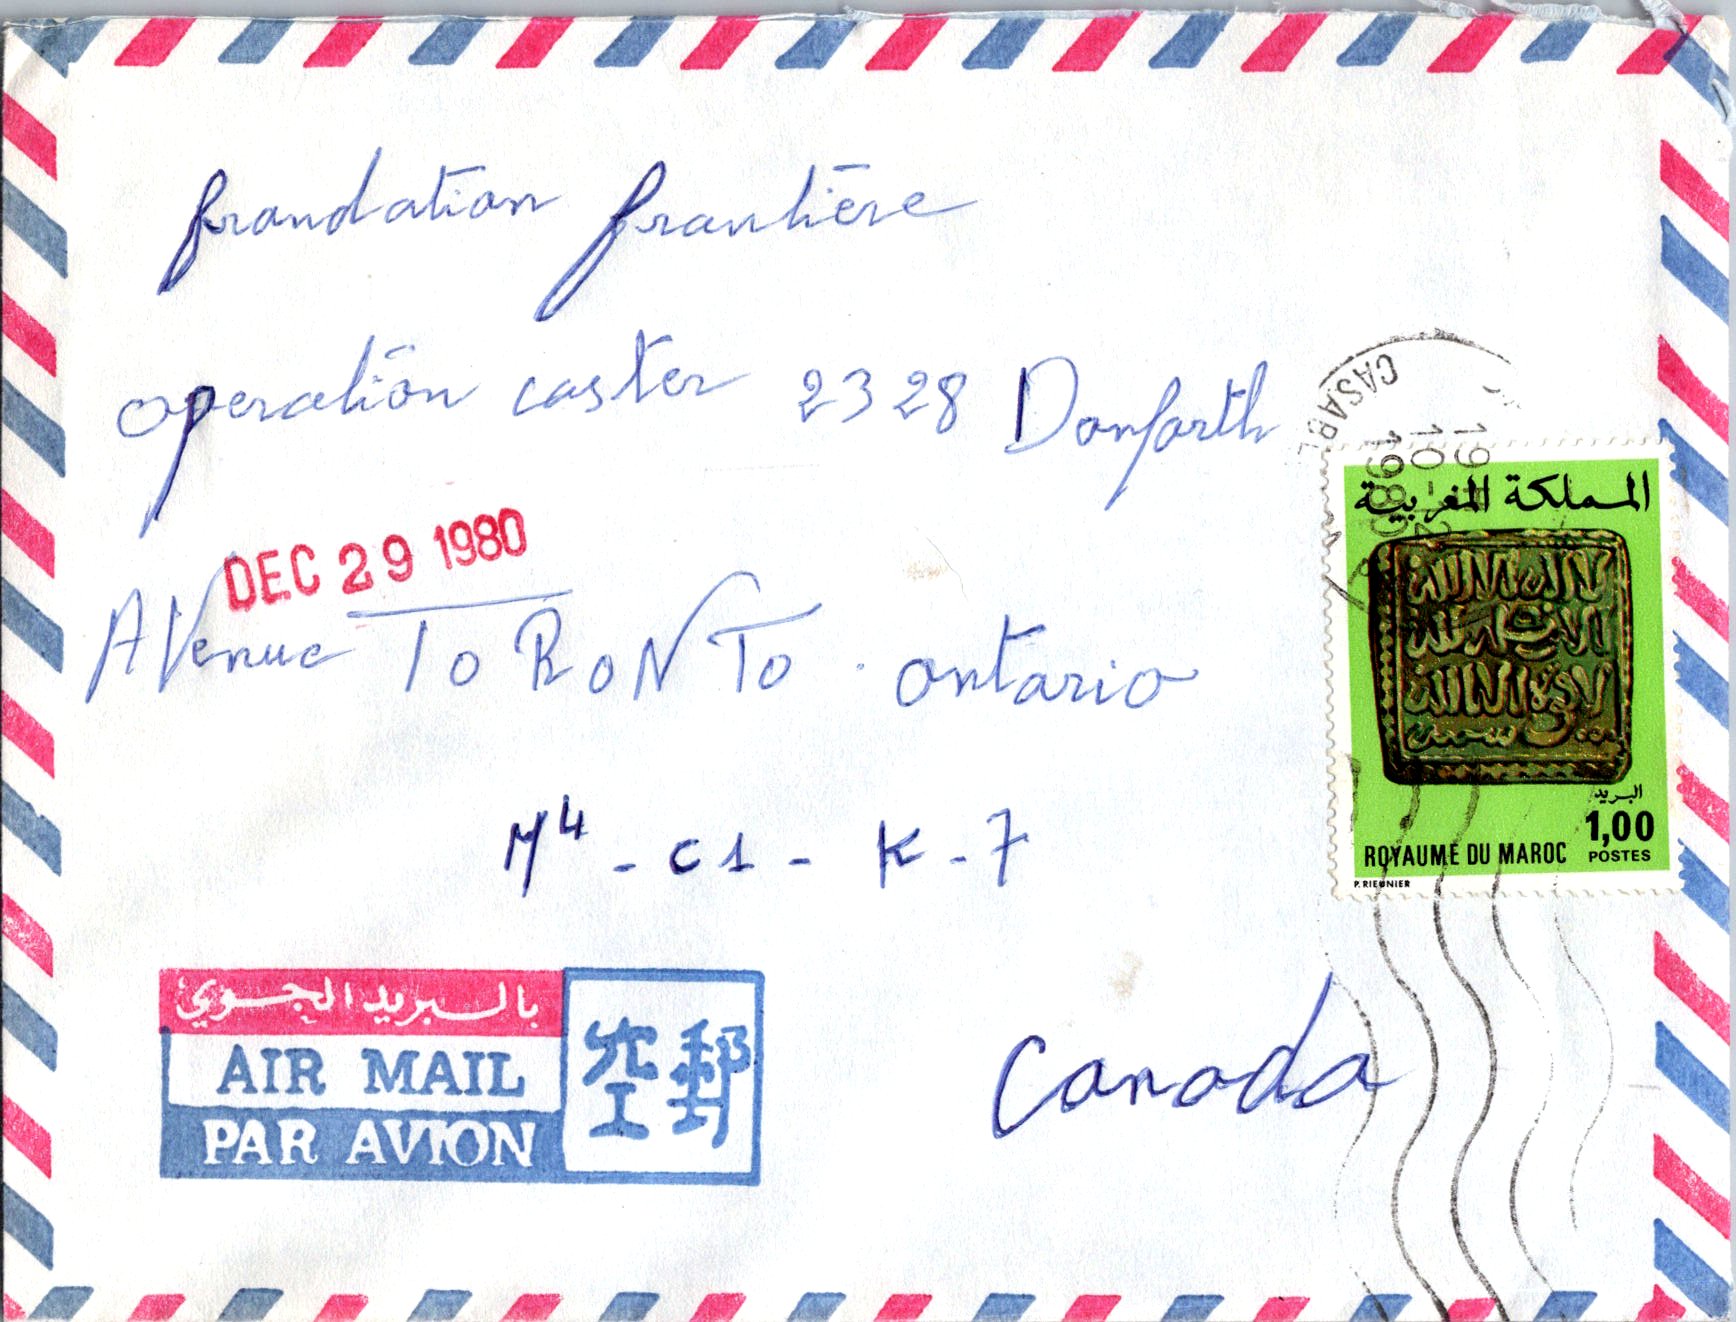 frandation frantière
operation caster 2328 Danforth
DEC 29 1980
AVenue ToRoNTo . ontario
M4 - C1 - K - 7
Canada
بالبريد الجوي
AIR MAIL
PAR AVION
空郵
CASABL
19
10-12
1980
المملكة المغربية
البريد
1,00
POSTES
ROYAUME DU MAROC
P. RIEUNIER